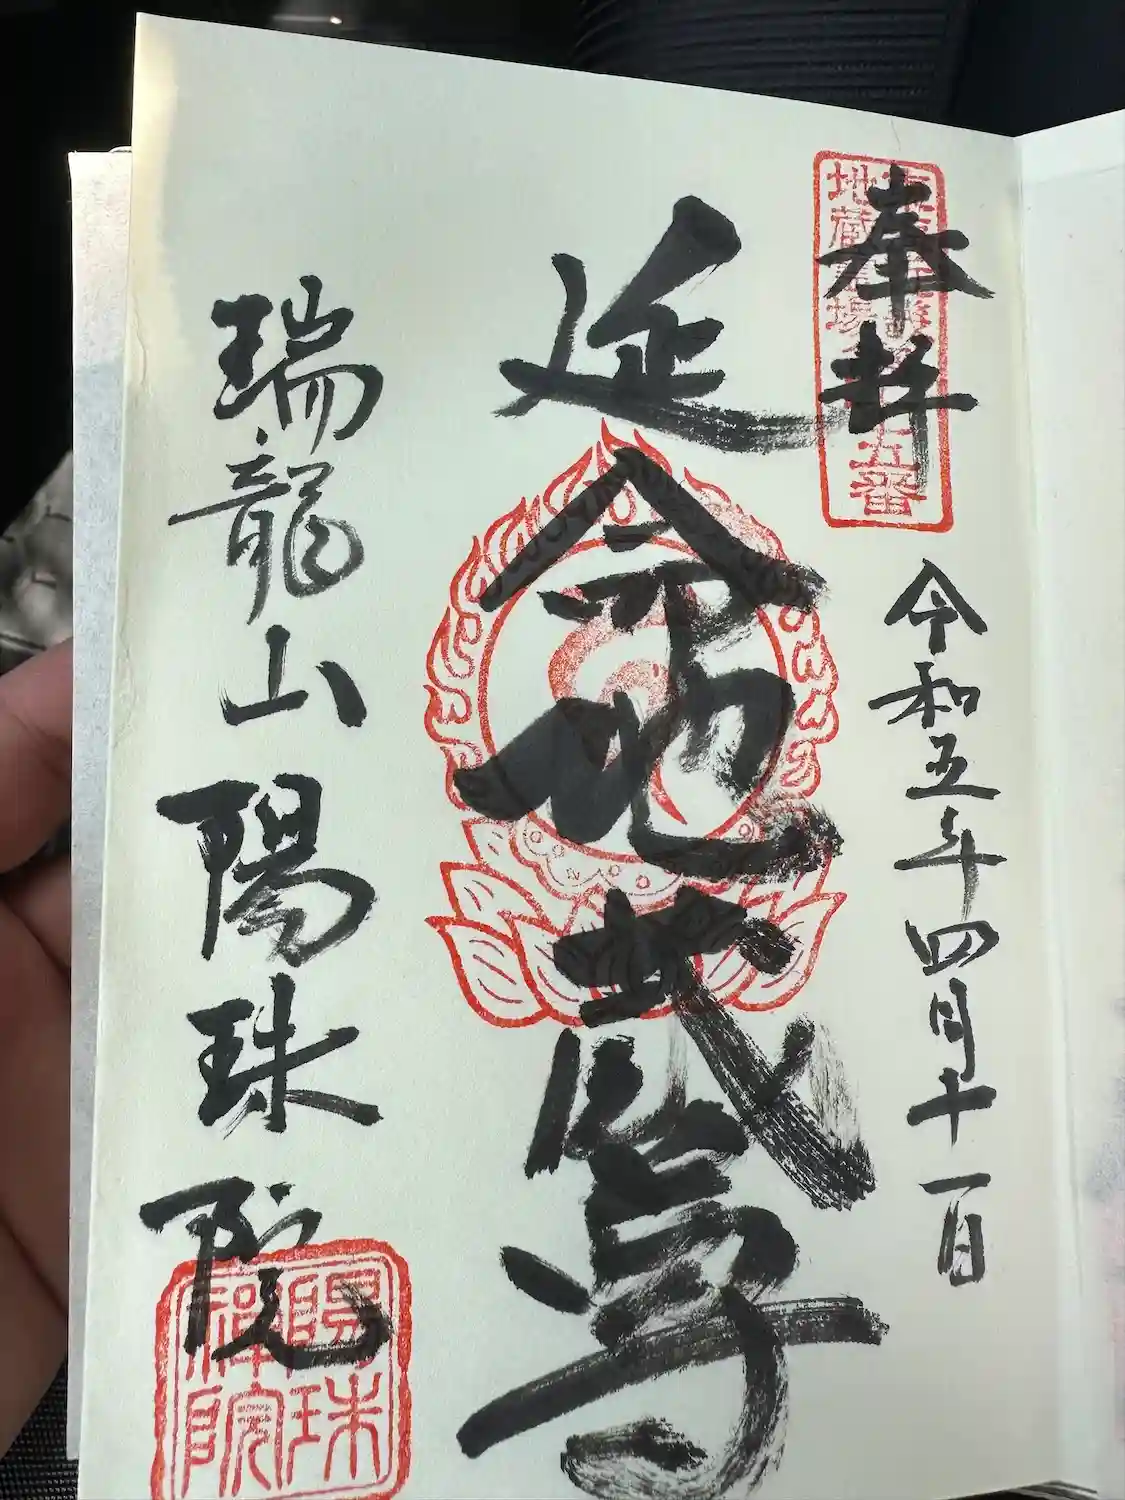 奉拝
五番
地蔵
令和五年四月十一日
延命地蔵尊
瑞龍山 陽珠院
陽珠
禅院